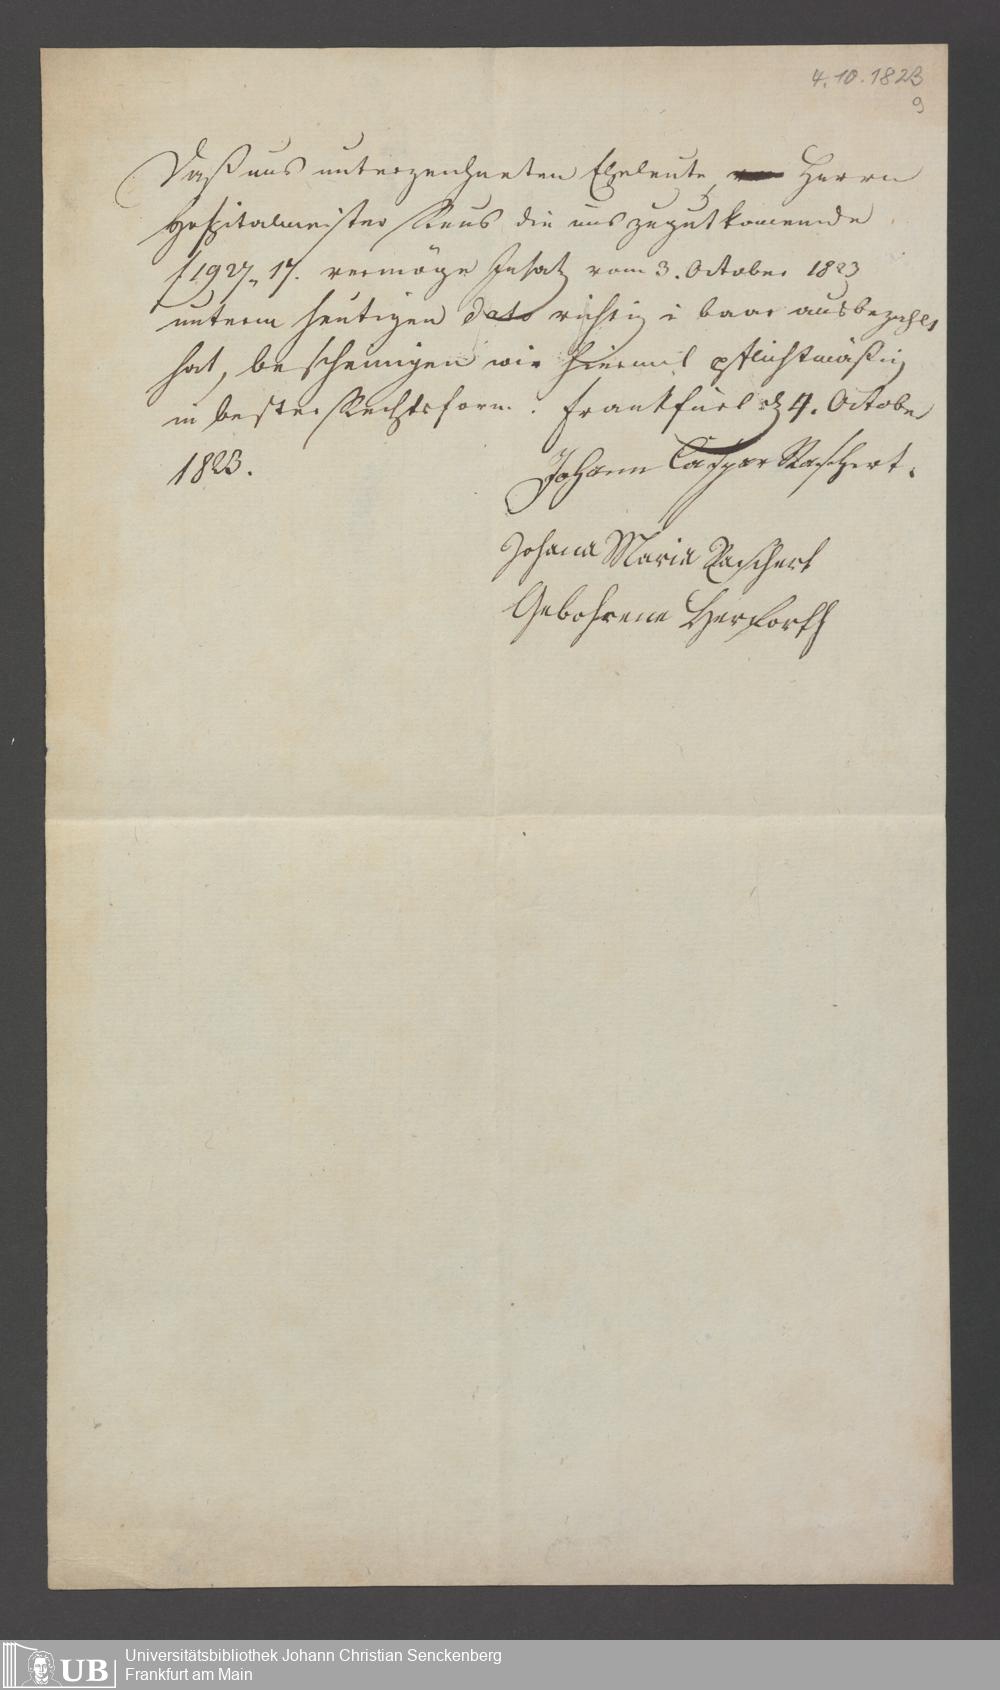 4.10.1823
9
Daß uns unterzeichneten Eheleute, Herrn
Hospitalmeister Reus die uns zugutkomende
f 1927„ 17. vermöge Insatz vom 3. October 1823
unterm heutigen dato richtig & baar ausbezahlt
hat, bescheinigen wir hiermit pflichtmäßig
in bester Rechtsform. Frankfurt d 4. October
1823.
Johann Caspar Raschert.
Johana Maria Raschert
Gebohrene Herforth
UB
Universitätsbibliothek Johann Christian Senckenberg
Frankfurt am Main